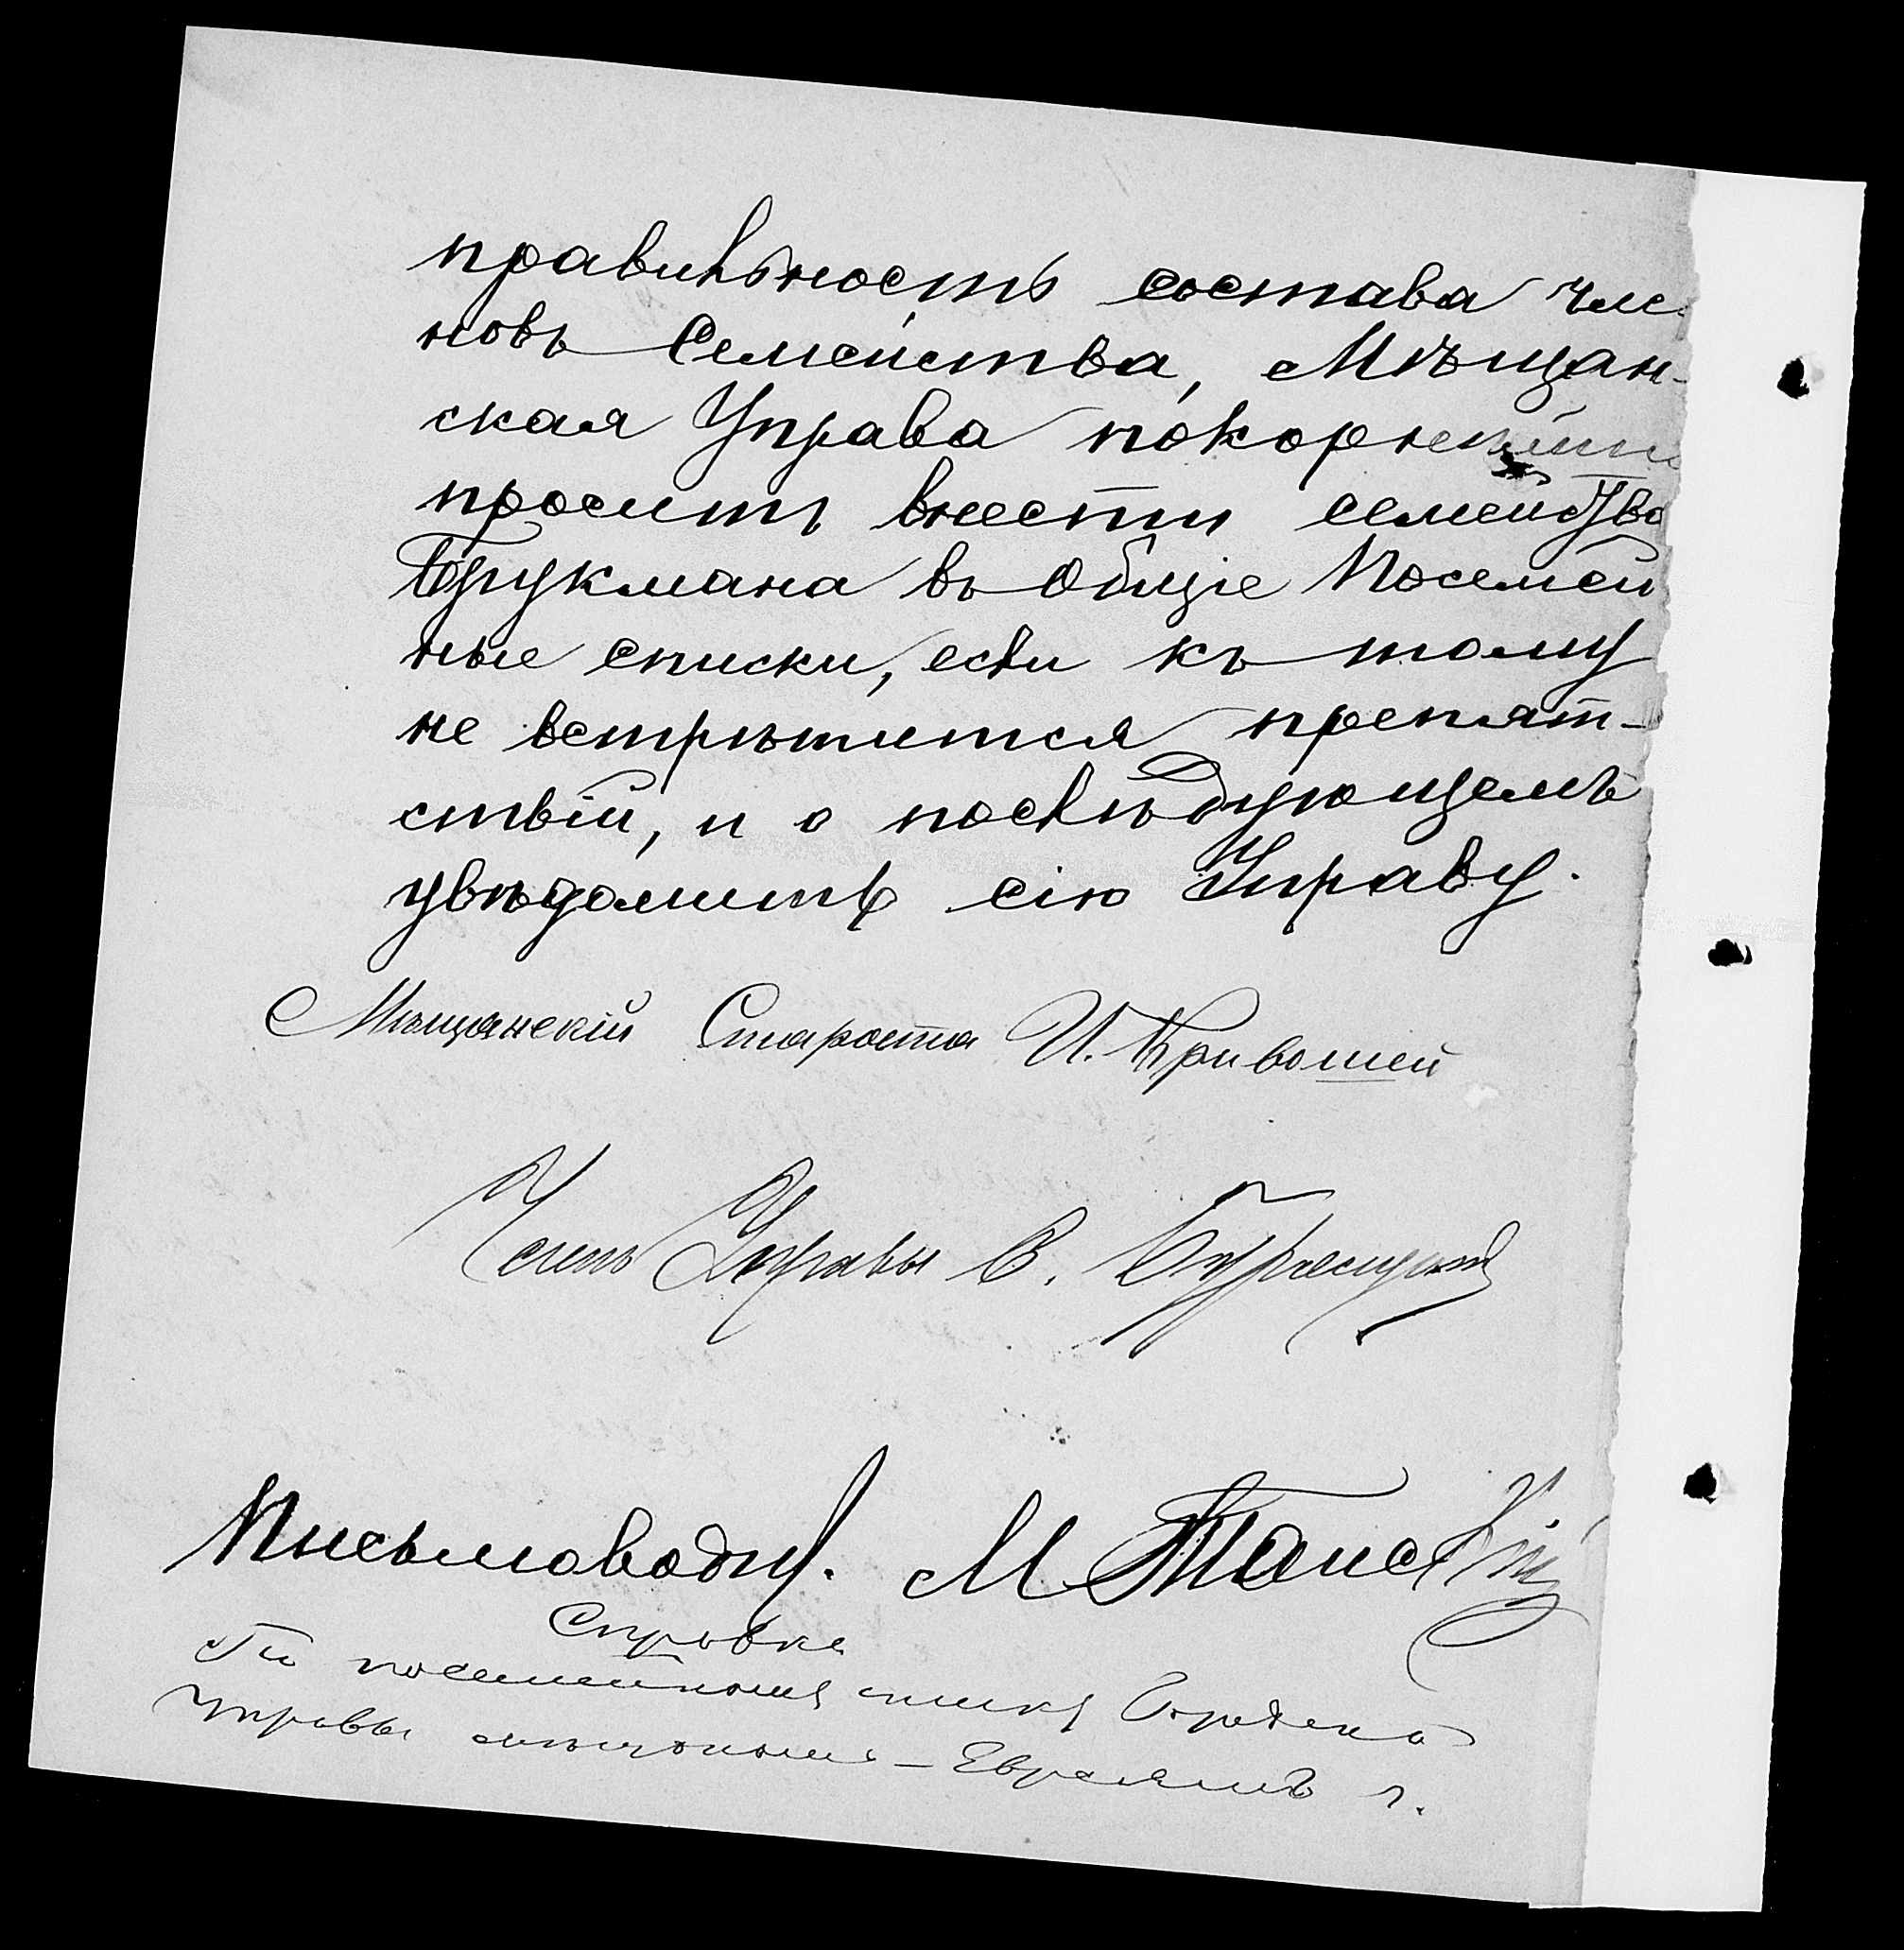 правильность состава чле-
новъ Семейства, Мѣщан-
ская Управа покорнѣйше
проситъ внести семейство
Брукмана въ Общіе Посемей
ные списки, если къ тому
не встрѣтится препят-
ствій, и о послѣдующемъ
увѣдомить сію Управу.
Мѣщанскій Староста И. Кривошей
Членъ Управы В.
Письмоводи. М
Справка
По посемейному списку Городской
Управы мѣщанъ - Евреямъ г.